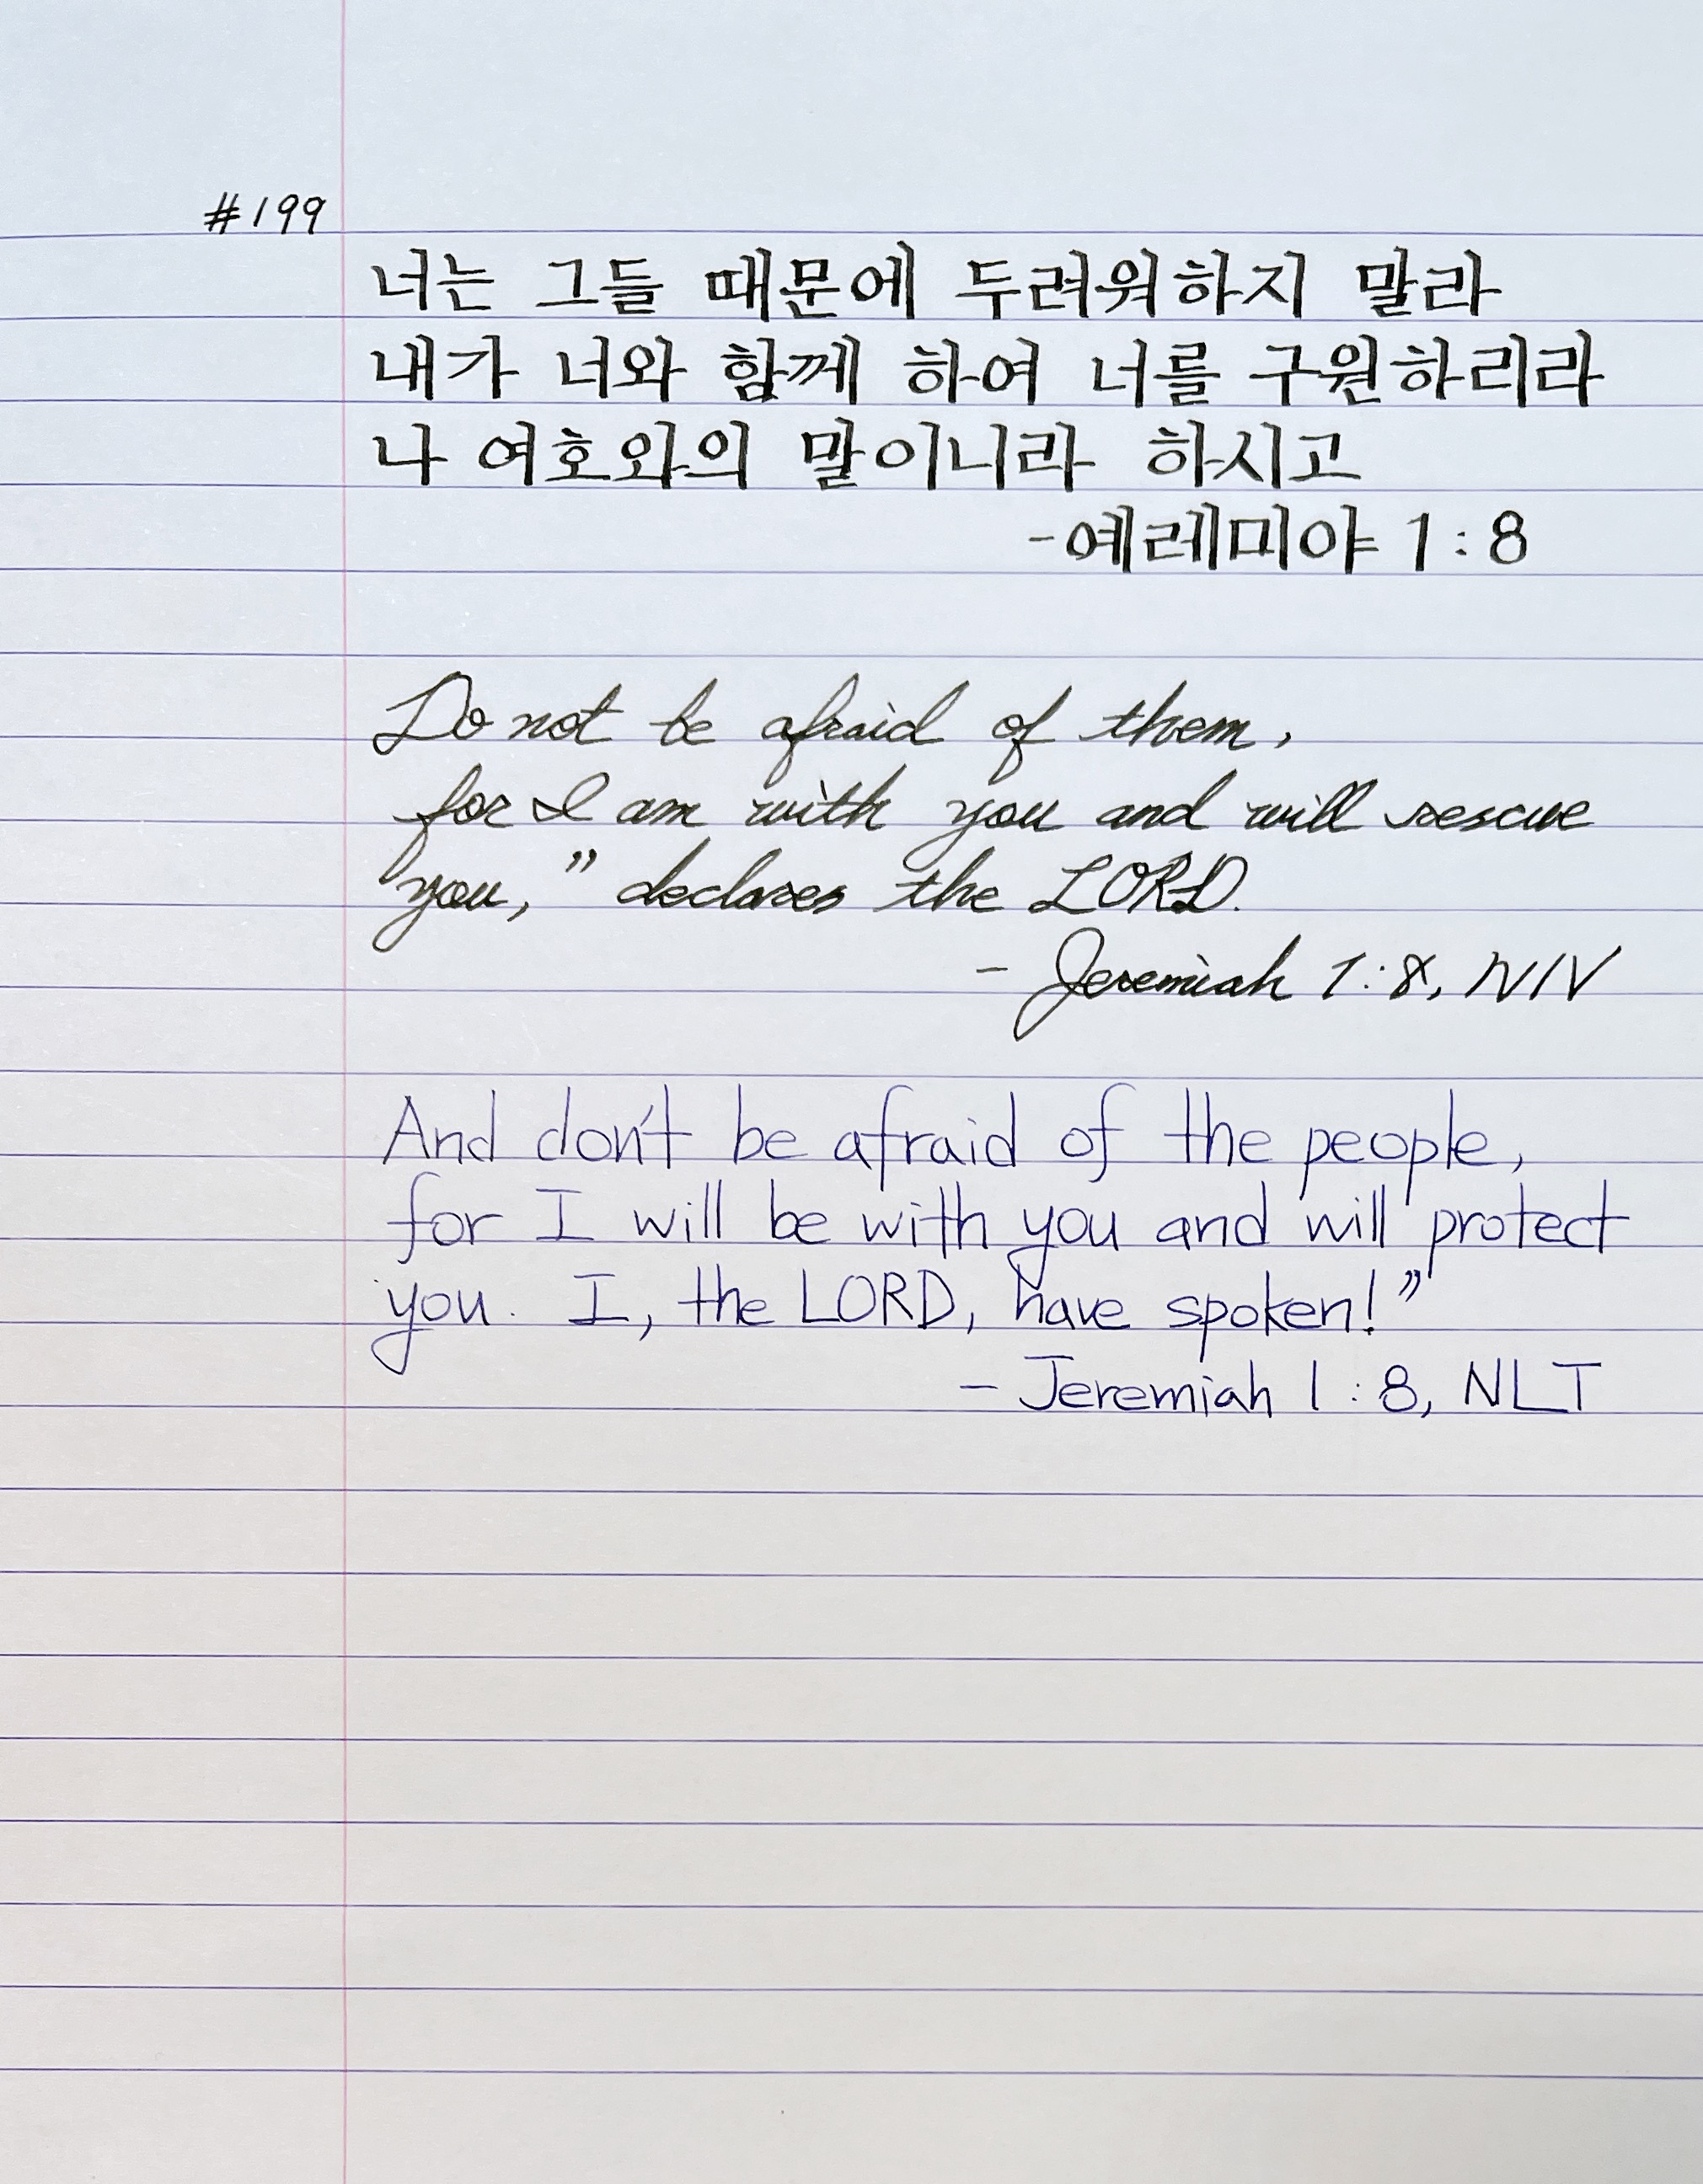 #199
너는 그들 때문에 두려워하지 말라
내가 너와 함께 하여 너를 구원하리라
나 여호와의 말이니라 하시고
-예레미야 1:8
Do not be afraid of them,
for I am with you and will rescue
you,” declares the LORD.
- Jeremiah 1:8, NIV
And don't be afraid of the people,
for I will be with you and will protect
you. I, the LORD, have spoken!”
- Jeremiah 1:8, NLT